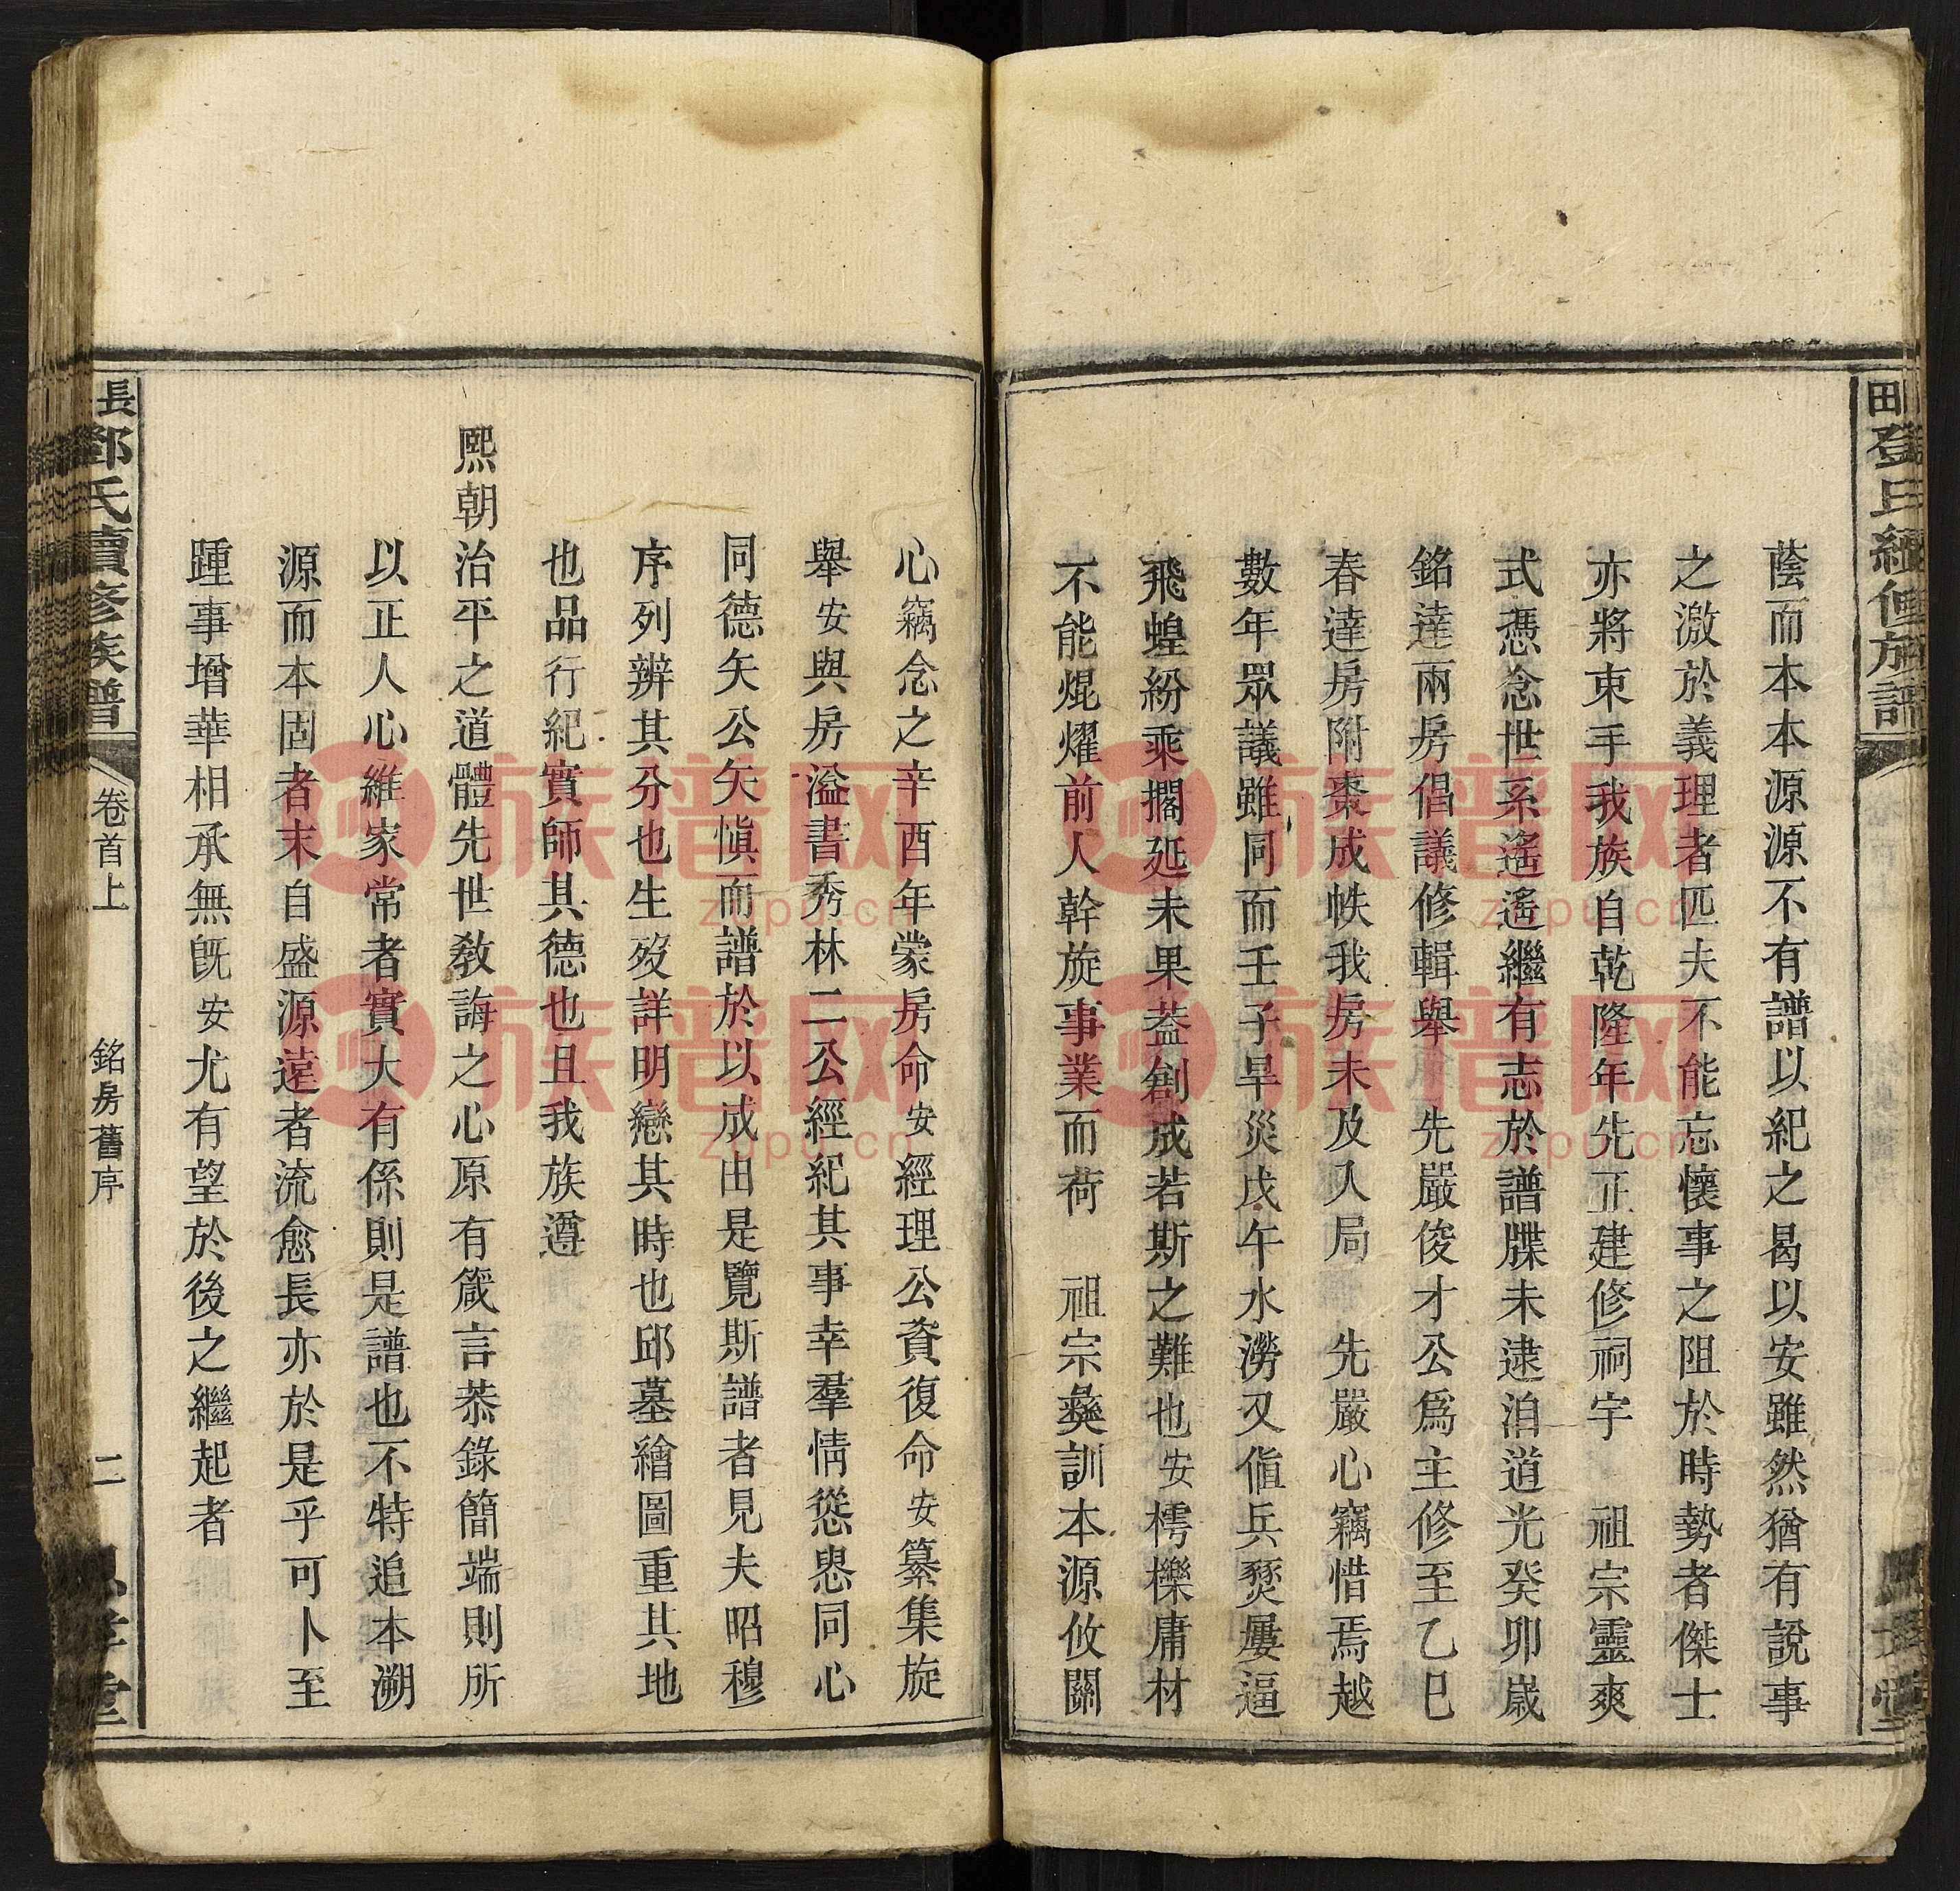 蔭而本本源源不有譜以紀之曷以安雖然猶有說事
之激於義理者匹夫不能忘懷事之阻於時勢者傑士
亦將束手我族自乾隆年先正建修祠宇 祖宗靈爽
式憑念世系遙遙繼有志於譜牒未逮洎道光癸卯歲
銘達兩房倡議修輯舉 先嚴俊才公爲主修至乙巳
春達房附棗成帙我房未及入局 先嚴心竊惜焉越
數年眾議雖同而壬子旱災戊午水澇又值兵燹屢逼
飛蝗紛乘擱延未果葢創成若斯之難也安樗櫟庸材
不能焜燿前人幹旋事業而荷 祖宗彝訓本源攸關
心竊念之辛酉年蒙房命安經理公資復命安纂集旋
舉安與房溢書秀林二公經紀其事幸羣情慫恿同心
同德矢公矢愼而譜於以成由是覽斯譜者見夫昭穆
序列辨其分也生歿詳明戀其時也邱墓繪圖重其地
也品行紀實師其德也且我族遵
熙朝治平之道體先世教誨之心原有箴言恭錄簡端則所
以正人心維家常者實大有係則是譜也不特追本溯
源而本固者末自盛源遠者流愈長亦於是乎可卜至
踵事增華相承無旣安尤有望於後之繼起者
長鄧氏續修族譜
卷首上
銘房舊序
二
族譜网
zupu.cn
族譜网
zupu.cn
族譜网
zupu.cn
族譜网
zupu.cn